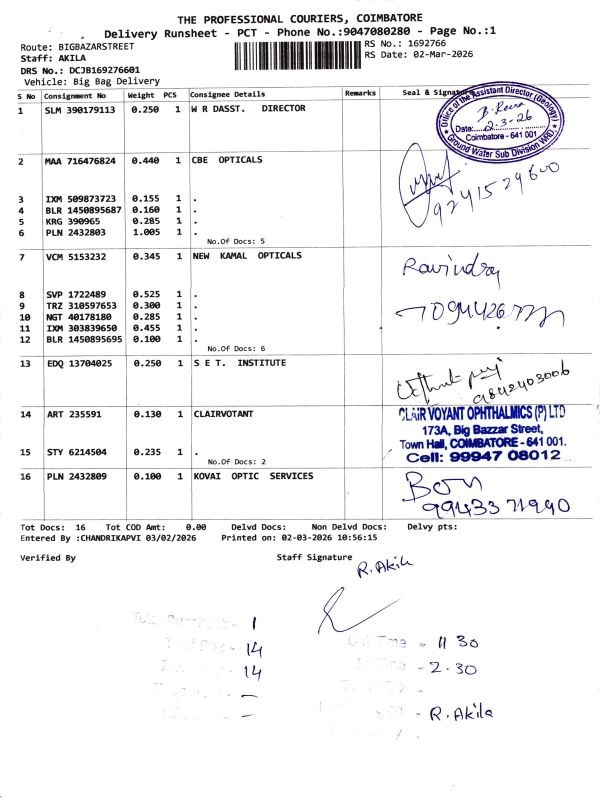 THE PROFESSIONAL COURIERS, COIMBATORE
Delivery Runsheet - PCT - Phone No.:9047080280 - Page No.:1
Route: BIGBAZARSTREET
RS No.: 1692766
Staff: AKILA
RS Date: 02-Mar-2026
DRS No.: DCJB169276601
Vehicle: Big Bag Delivery
S No Consignment No Weight PCS Consignee Details Remarks Seal & Signature
1 SLM 390179113 0.250 1 W R DASST. DIRECTOR
Office of the Assistant Director (Geology)
Date: 2-3-26
Coimbatore - 641 001
Ground Water Sub Division WRD
2 MAA 716476824 0.440 1 CBE OPTICALS
9241529600
3 IXM 509873723 0.155 1 .
4 BLR 1450895687 0.160 1 .
5 KRG 390965 0.285 1 .
6 PLN 2432803 1.005 1 .
No.Of Docs: 5
7 VCM 5153232 0.345 1 NEW KAMAL OPTICALS
Ravindra
8 SVP 1722489 0.525 1 .
9 TRZ 310597653 0.300 1 .
10 NGT 40178180 0.285 1 .
11 IXM 303839650 0.455 1 .
12 BLR 1450895695 0.100 1 .
No.Of Docs: 6
13 EDQ 13704025 0.250 1 S E T. INSTITUTE
9842403006
14 ART 235591 0.130 1 CLAIRVOTANT
CLAIR VOYANT OPHTHALMICS (P) LTD
173A, Big Bazzar Street,
Town Hall, COIMBATORE - 641 001.
Cell: 99947 08012
15 STY 6214504 0.235 1 .
No.Of Docs: 2
16 PLN 2432809 0.100 1 KOVAI OPTIC SERVICES
Tot Docs: 16 Tot COD Amt: 0.00 Delvd Docs: Non Delvd Docs: Delvy pts:
Entered By :CHANDRIKAPVI 03/02/2026 Printed on: 02-03-2026 10:56:15
Verified By
Staff Signature
R. Akila
- 1
Out Time - 11 30
- 14
In Time - 2.30
- 14
- -
- R. Akila
- -